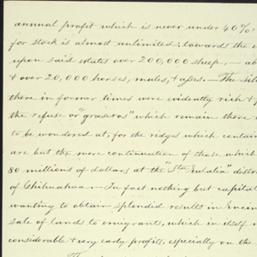 annual profit which is never under 40%
for stock is almost unlimited; towards the
upon said estates over 200,000 sheep, — ab
& over 20,000 horses, mules, & asses. — The sil
there in former times were evidently rich &
the refuse or "graseros" which remain there
to be wondered at; for the ridges which contain
are but the mere continuation of those which
80 millions of dollars at the "Sta. Eulalia" distr
of Chihuahua. — In fact nothing but capital
wanting to obtain splendid results in
sale of lands to emigrants, which in itself
considerable & very early profits, especially on the